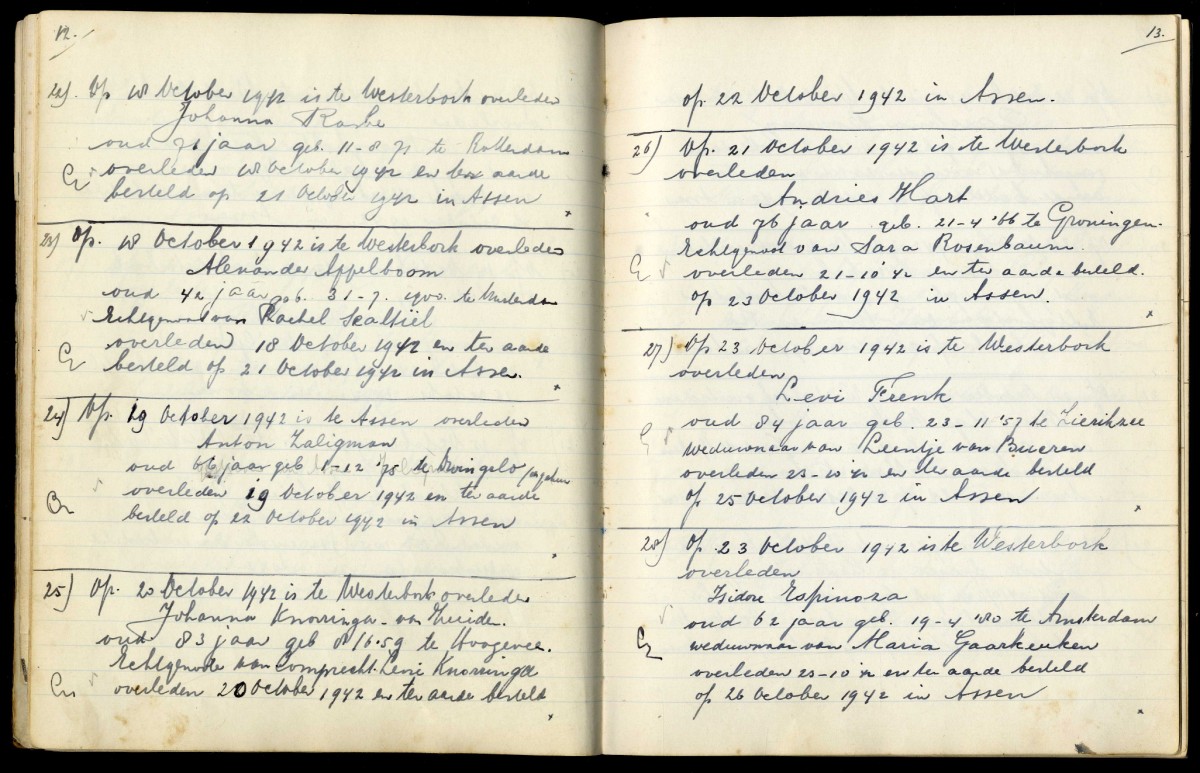 12.
22) Op 18 October 1942 is te Westerbork overleden
Johanna
oud 71 jaar geb. 11-8 71 te Rotterdam
overleden 18 October 1942 en ter aarde
besteld op 21 October 1942 in Assen
23) Op. 18 October 1942 is te Westerbork overleden
Alexander Appelboom
oud 42 jaar geb. 31-7. 1900. te Amsterdam
Echtgenoot van Rachel Scaltiël
overleden 18 October 1942 en ter aarde
besteld op 21 October 1942 in Assen.
24) Op. 19 October 1942 is te Assen overleden
Anton Zaligman
oud 66 jaar geb 1-12 '75 te Dwingelo
overleden 19 October 1942 en ter aarde
besteld op 22 October 1942 in Assen
25) Op. 20 October 1942 is te Westerbork overleden
Johanna Knorringa - van
oud 83 jaar geb te Hoogevee.
Echtgenoote van Comprecht Levie Knorringa
overleden 20 October 1942 en ter aarde besteld
13.
op 22 October 1942 in Assen.
26) Op. 21 October 1942 is te Westerbork
overleden
Andries Hart
oud 76 jaar geb. 21-4 '66 te Groningen.
Echtgenoot van Sara Rosenbaum.
overleden 21-10 '42 en ter aarde besteld.
op 23 October 1942 in Assen.
27) Op 23 October 1942 is te Westerbork
overleden
Levi Frenk
oud 84 jaar geb. 23-11 '57 te Zierikzee
weduwnaar van Leentje van Bueren
overleden 23-10 '42 en ter aarde besteld
op 25 October 1942 in Assen
28) Op. 23 October 1942 is te Westerbork
overleden
Isidore Espinoza
oud 62 jaar geb. 19-4 '80 te Amsterdam
weduwnaar van Maria Gaarkeuken
overleden 23-10 '42 en ter aarde besteld
op 26 October 1942 in Assen